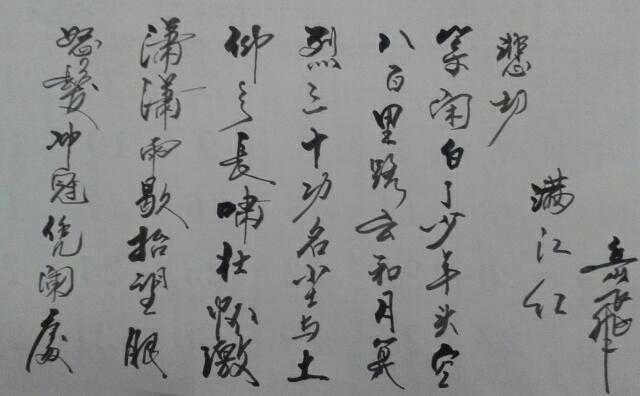 怒髮冲冠凭阑處
潇潇雨歇抬望眼
仰天長啸壮怀激
烈三十功名尘与土
八百里路云和月莫
等闲白了少年头空
悲切
满江红
岳飞